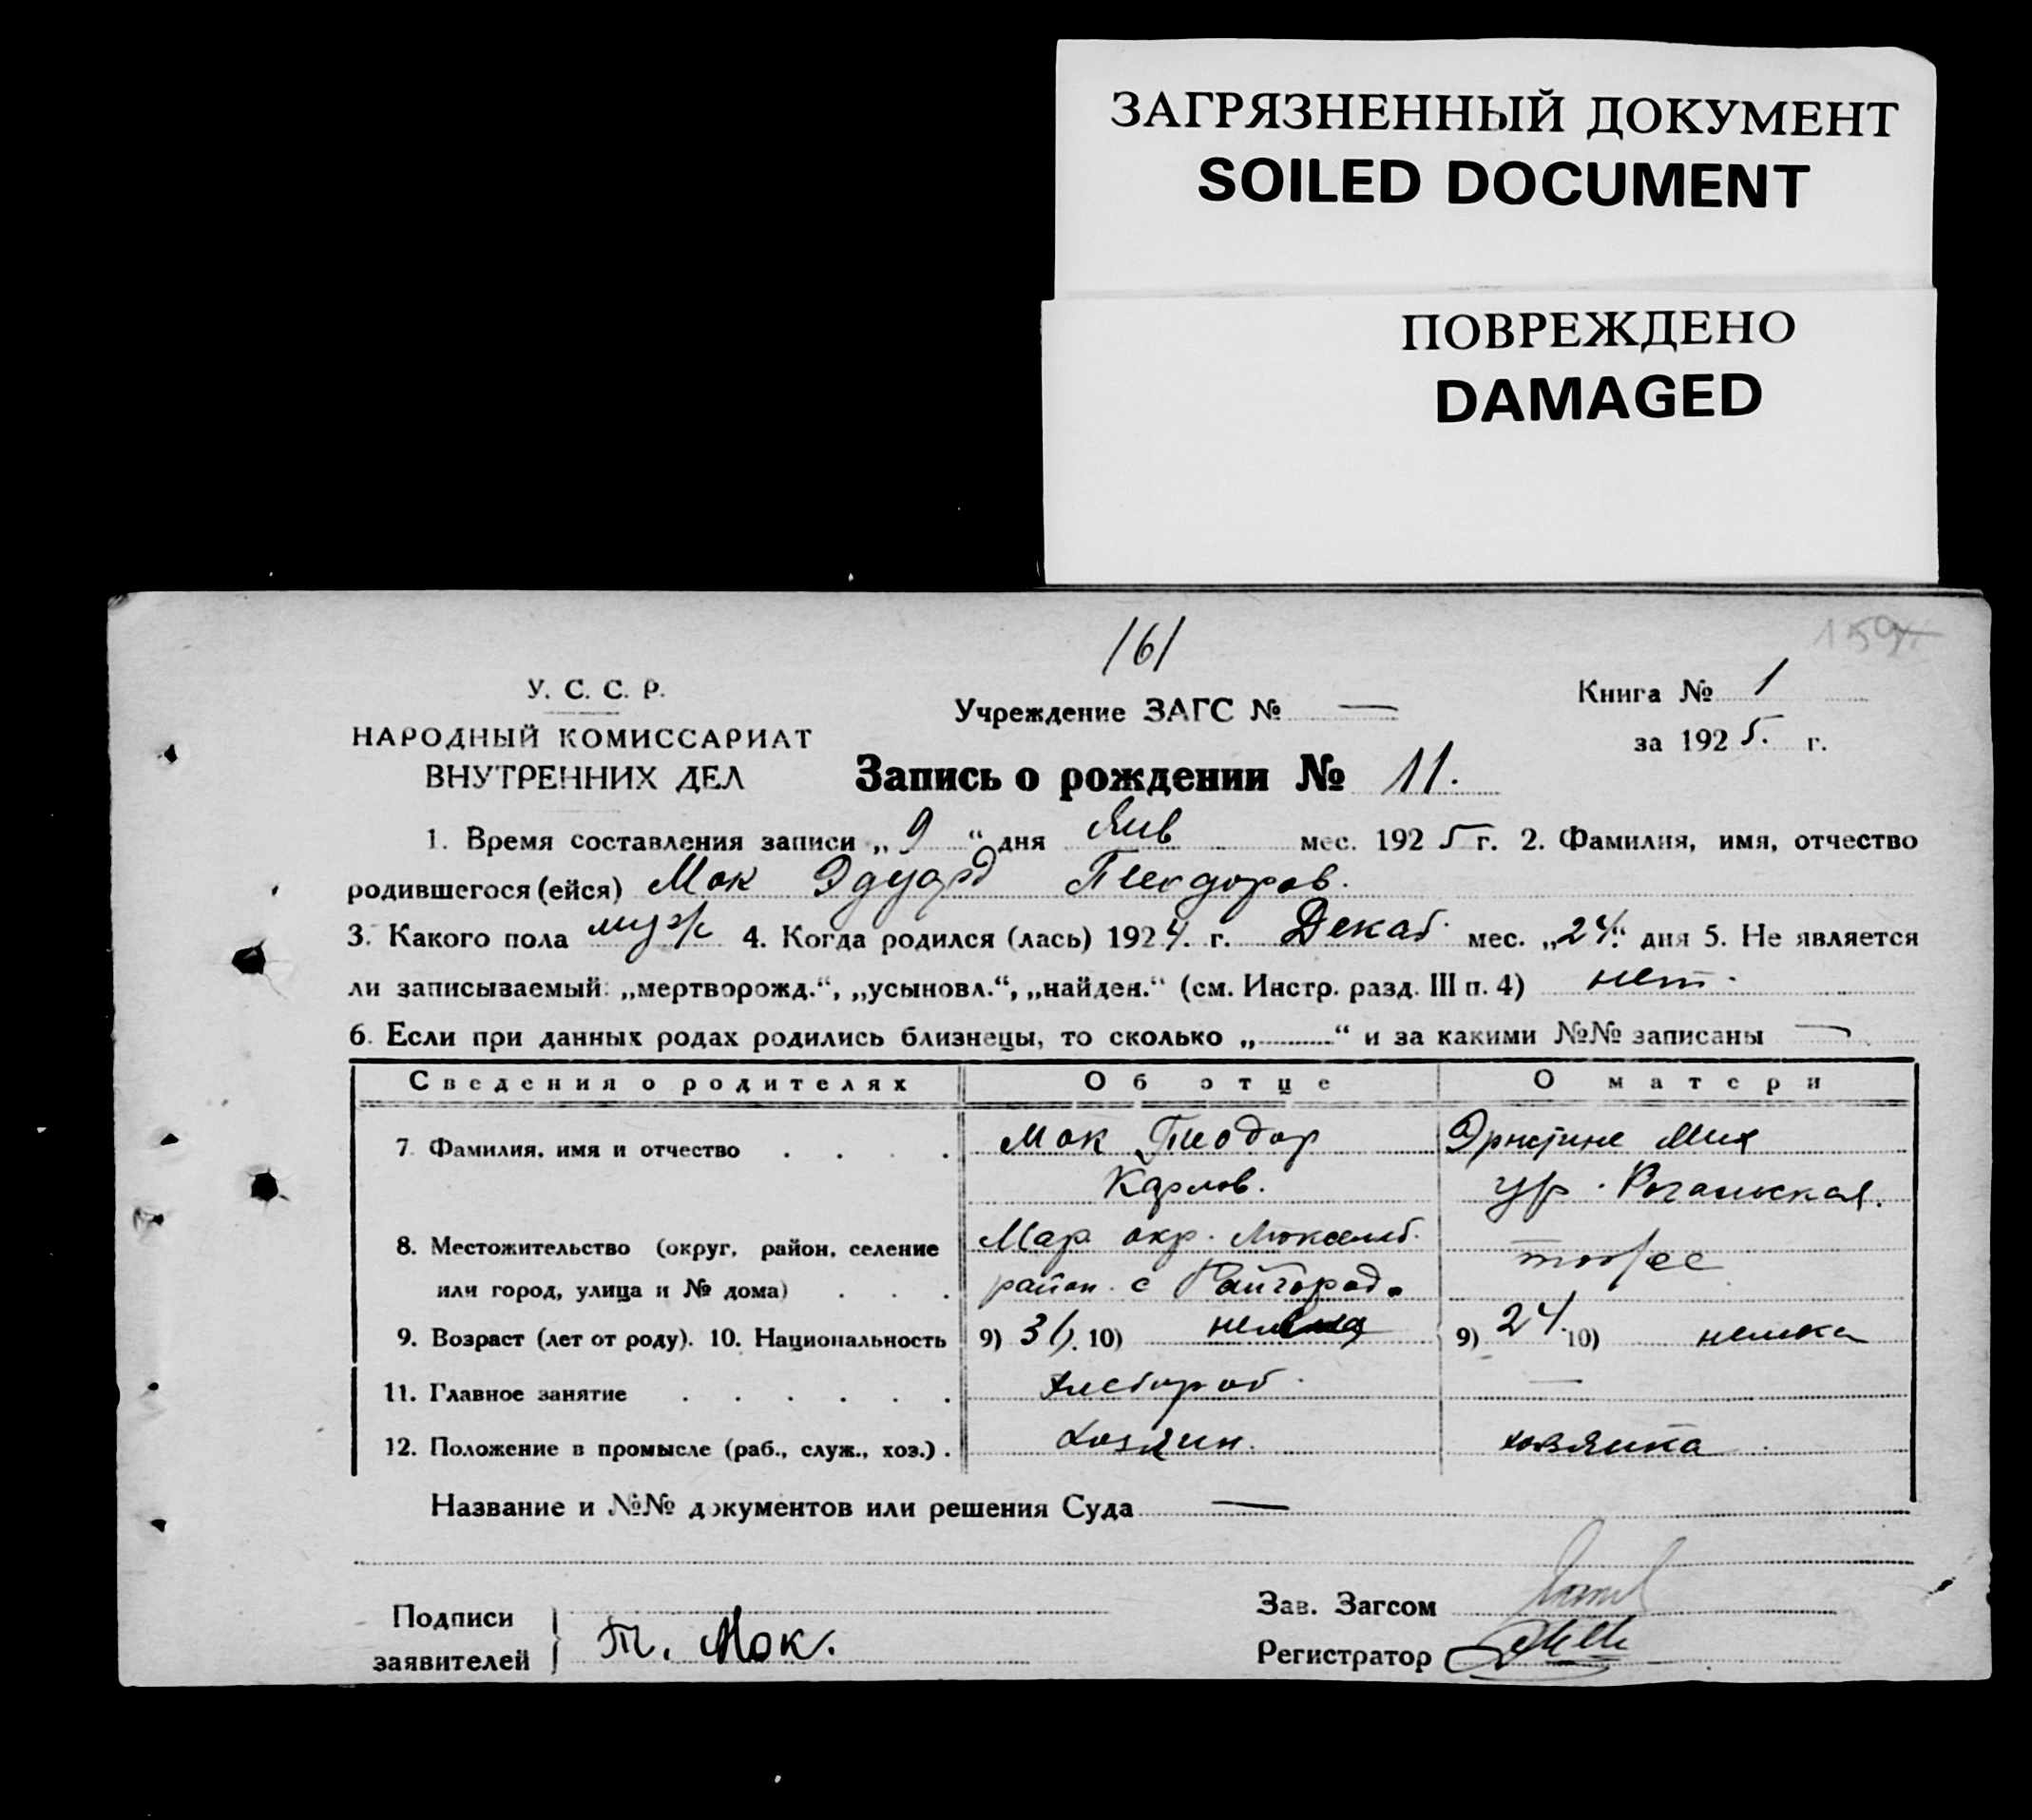 ЗАГРЯЗНЕННЫЙ ДОКУМЕНТ
SOILED DOCUMENT
ПОВРЕЖДЕНО
DAMAGED
161
У. С. С. Р.
НАРОДНЫЙ КОМИССАРИАТ
ВНУТРЕННИХ ДЕЛ
Учреждение ЗАГС № —
Книга № 1
за 1925. г.
Запись о рождении № 11.
1. Время составления записи „9“ дня Янв мес. 1925 г. 2. Фамилия, имя, отчество
родившегося (ейся) Мок Эдуард Теодоров.
3. Какого пола муж 4. Когда родился (лась) 1924. г. Декаб. мес. „24.“ дня 5. Не является
ли записываемый: „мертворожд.“, „усыновл.“, „найден.“ (см. Инстр. разд. III п. 4) нет.
6. Если при данных родах родились близнецы, то сколько „..........“ и за какими №№ записаны —
Сведения о родителях Об отце О матери
7. Фамилия, имя и отчество . . . . Мок Теодор Эрнстине Мих
Карлов. ур. Рогальская.
8. Местожительство (округ, район, селение Мар окр. Люксемб.
или город, улица и № дома) . . . район с Райгород. тоже
9. Возраст (лет от роду). 10. Национальность 9) 31. 10) 9) 24. 10) немка
11. Главное занятие . . . . . . Хлебороб. —
12. Положение в промысле (раб., служ., хоз.) . Хозяин. хозяйка
Название и №№ документов или решения Суда —
Подписи
заявителей
Т. Мок.
Зав. Загсом
Регистратор